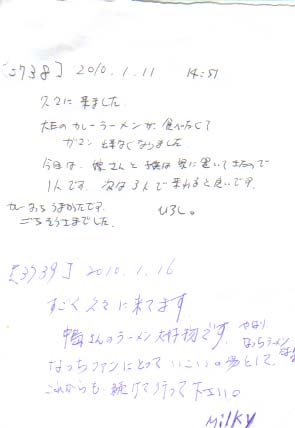 [3738] 2010.1.11 14:51
久々に来ました。
大玉のカレーラーメンが食べたくて
ガマン出来なくなりました。
今日は、嫁さんと子供は家に置いてきたので
1人です。次は3人で来れると良いです。
カレーおいちうまかったです。
ごちそうさまでした。 ひろし。
[3739] 2010.1.16
すごく久々に来てます
鴨さんのラーメン大好物です。やはり
なっちラーメン
なっちファンにとっていこいの場として、
これからも続けて行って下さい。
Milky